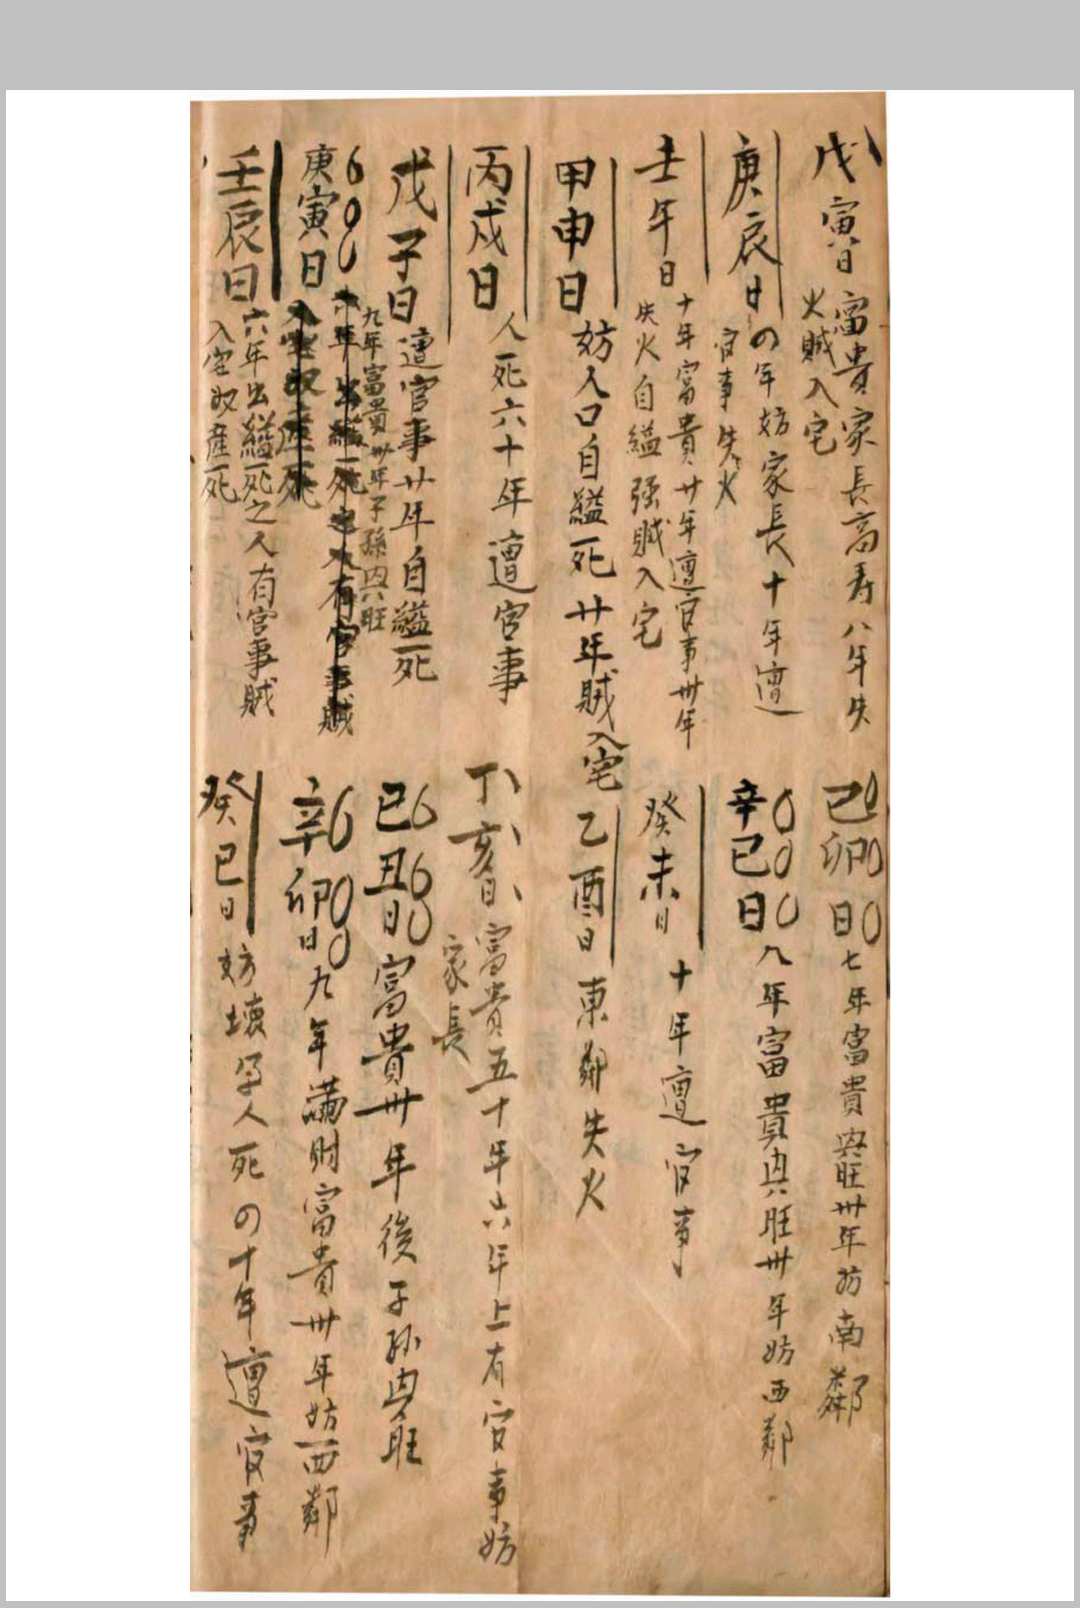 戊寅日富貴家長高寿八年失
火賊入宅
己卯日七年富貴興旺卅年妨南鄰
庚辰日四年妨家長十年遭
官事失火
辛巳日八年富貴興旺卅年妨西鄰
壬午日十年富貴廿年遭官事卅年
失火自縊強賊入宅
癸未日十年遭官事
甲申日妨人口自縊死廿年賊入宅
乙酉日東鄰失火
丙戌日人死六十年遭官事
丁亥日富貴五十年六年上有官事妨
家長
戊子日遭官事廿年自縊死
己丑日富貴卅年後子孫興旺
庚寅日九年富貴卅年子孫興旺
六年出縊死之人有官事賊
入宅奴産死
辛卯日九年滿財富貴卅年妨西鄰
壬辰日六年出縊死之人有官事賊
入宅奴産死
癸巳日妨壊孕人死四十年遭官事